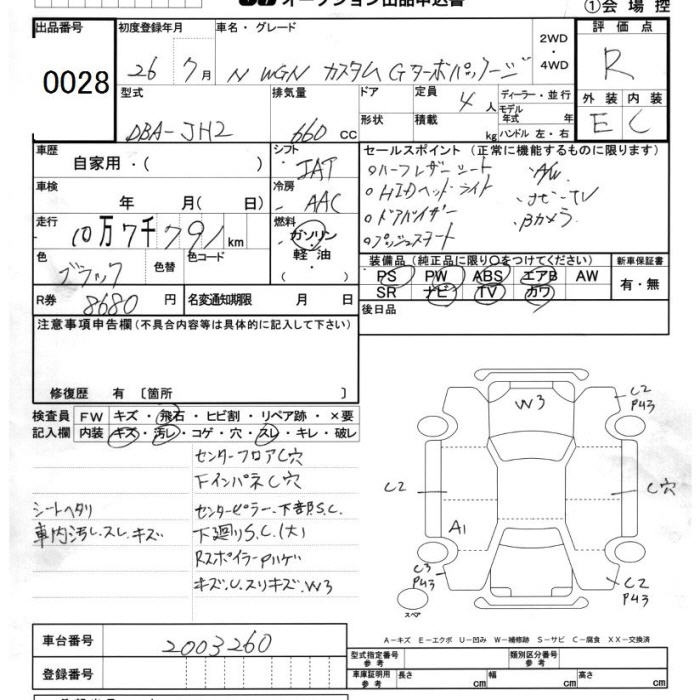 オークション出品申込書
①会場控
出品番号
0028
初度登録年月
26 7月
車名・グレード
N WGN カスタム Gターボパッケージ
2WD
・
4WD
評価点
R
外装 内装
E C
型式
DBA-JH2
排気量
660 cc
ドア
形状
定員
4人
積載
kg
ディーラー・並行
モデル
年式 年
ハンドル 左・右
車歴
自家用・( )
シフト
IAT
車検
年 月( 日)
冷房
AAC
走行
10万7千791km
燃料
ガソリン
軽油
( ・ )
色
ブラック
色替
色コード
R券
8680円
名変通知期限 月 日
セールスポイント(正常に機能するものに限ります)
・ハーフレザーシート ・A/W
・HIDヘッドライト ・ナビ・TV
・ドアバイザー ・Bカメラ
・プッシュスタート
装備品(純正品に限り○をつけてください)
PS PW ABS エアB AW
SR ナビ TV カワ
新車保証書
有・無
後日品
注意事項申告欄(不具合内容等は具体的に記入して下さい)
修復歴 有 〔箇所 〕
検査員
記入欄
FW キズ・飛石・ヒビ割・リペア跡・×要
内装 キズ・汚レ・コゲ・穴・スレ・キレ・破レ
センターフロアC穴
下インパネC穴
シートヘタリ
センターピラー・下部S.C
車内汚レ.スレ.キズ
下廻りS.C(大)
RスポイラーPハゲ
キズ.U.スリキズ.W3
W3
C2
P43
C2
C穴
A1
C3
P43
C2
P43
スペア
A－キズ E－エクボ U－凹み W－補修跡 S－サビ C－腐食 XX－交換済
車台番号
2003260
登録番号
型式指定番号
参考
類別区分番号
参考
車庫証明用
参考
長さ cm
幅 cm
高さ cm